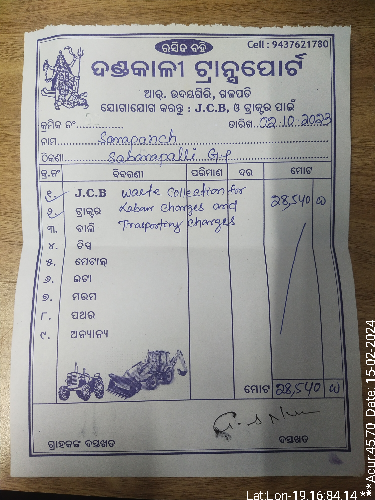 ରସିଦ ବହି
Cell : 9437621780
ଦଣ୍ଡକାଳୀ ଟ୍ରାନ୍ସପୋର୍ଟ
ଆର୍. ଉଦୟଗିରି, ଗଜପତି
ଯୋଗାଯୋଗ କରନ୍ତୁ : J.C.B, ଓ ଟ୍ରାକ୍ଟର ପାଇଁ
କ୍ରମିକ ନଂ
ତାରିଖ 02.10.2023
ନାମ Sarapanch
ଠିକଣା Sabarapalli G.P
କ୍ର.ନଂ ବିବରଣୀ ପରିମାଣ ଦର ମୋଟ
୧. J.C.B Waste Collection for 28,540
୨. ଟ୍ରାକ୍ଟର Labour Charges and
୩. ବାଲି Trasporting Charges
୪. ଚିପ୍ସ
୫. ମେଟାଲ୍
୬. ଇଟା
୭. ମରମ
୮. ପଥର
୯. ଅନ୍ୟାନ୍ୟ
ମୋଟ 28,540
ଗ୍ରାହକଙ୍କ ଦସ୍ତଖତ
ଦସ୍ତଖତ
Lat:Lon-19.16:84.14***Acur:4570 Date:15-02-2024